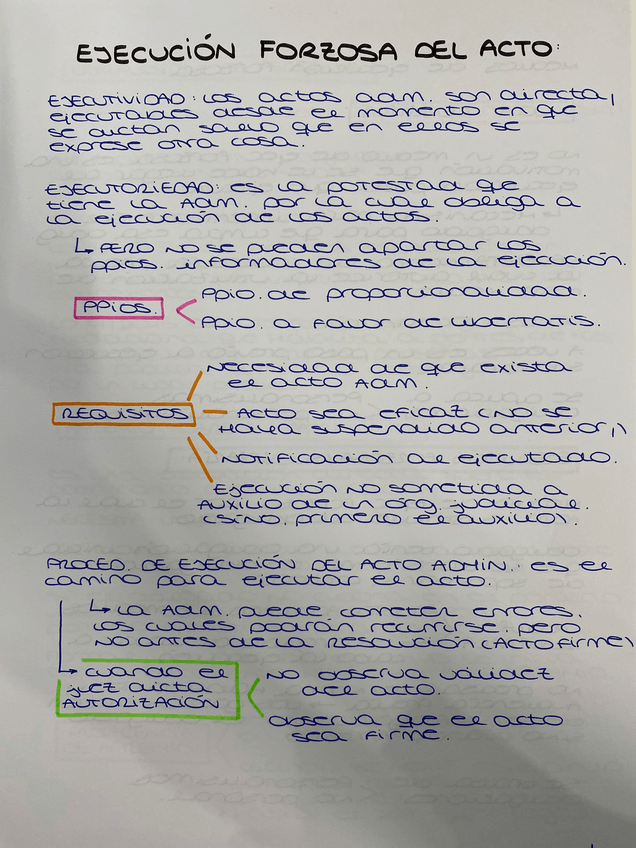 EJECUCIÓN FORZOSA DEL ACTO:
EJECUTIVIDAD: Los actos adm. son directa,
ejecutables desde el momento en que
se dictan salvo que en ellos se
exprese otra cosa.
EJECUTORIEDAD: es la potestad que
tiene la Adm. por la cual obliga a
la ejecución de los actos.
↳ PERO NO se pueden apartar los
ppios. informadores de la ejecución.
PPIOS.
Ppio. de proporcionalidad.
Ppio. a favor de libertatis.
REQUISITOS
Necesidad de que exista
el acto Adm.
Acto sea eficaz (no se
haya suspendido anterior,)
Notificación al ejecutado.
Ejecución no sometida a
auxilio de un órg. judicial.
(sino, primero el auxilio).
PROCED. DE EJECUCIÓN DEL ACTO ADMIN.: es el
camino para ejecutar el acto.
↳ La Adm. puede cometer errores,
los cuales podrán recurrirse, pero
no antes de la resolución (ACTO FIRME)
→ Cuando el
juez dicta
AUTORIZACIÓN
No observa validez
del acto.
Observa que el acto
sea firme.